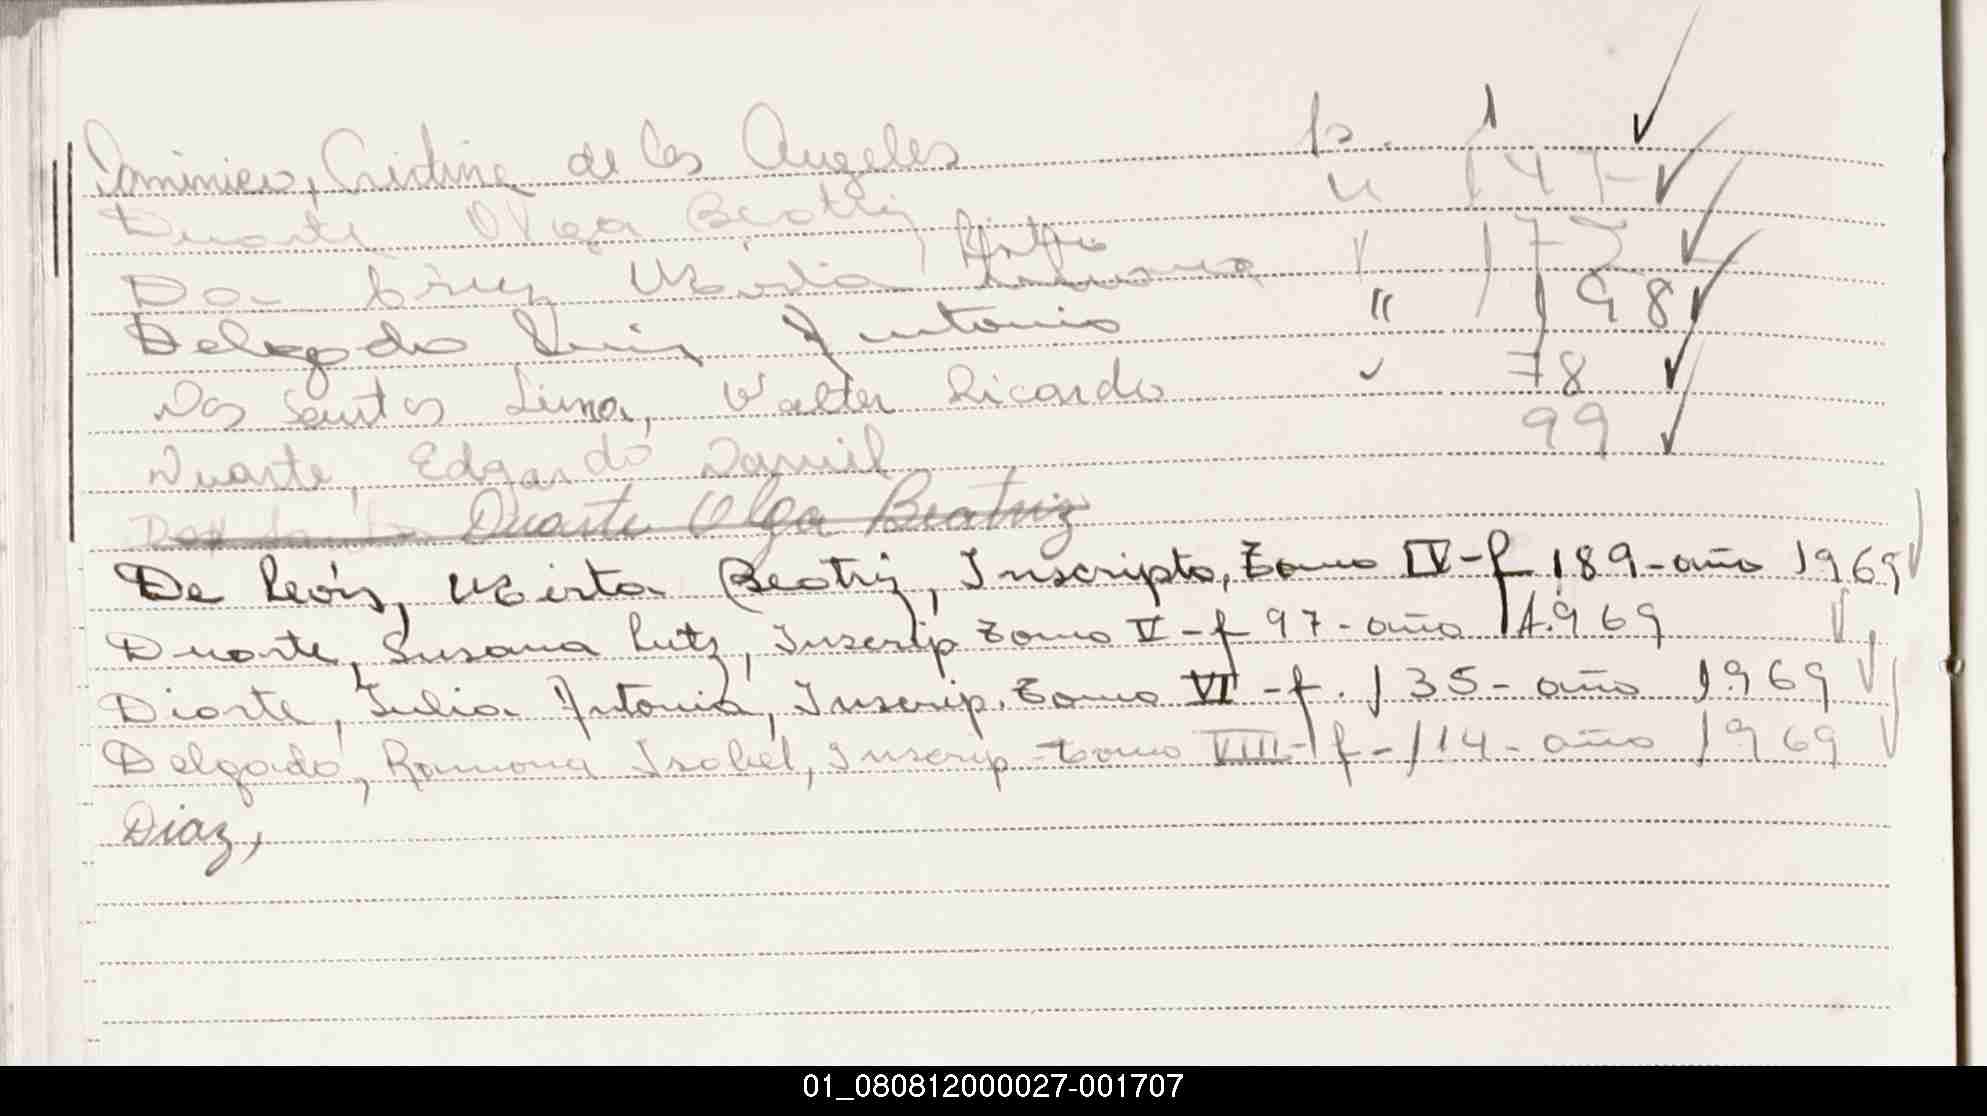 Dominico, Cristina de los Angeles p. 1
Duarte Olga Beatriz " 147-
Da Cruz Maria " 172
Delgado Luis Antonio " 198
Dos Santos Lima, Walter Ricardo " 78
Duarte, Edgardo Daniel 99
Duarte Olga Beatriz
De León, Mirta Beatriz, Inscripto, Tomo IV-f 189-año 1969
Duarte, Susana Lutz, Inscrip Tomo V-f 97-año 1.969
Diarte, Julia Antonia, Inscrip. Tomo VI-f. 135-año 1969
Delgado, Ramona Isabel, Inscrip-Tomo VIII-f-114-año 1969
Diaz,
01_080812000027-001707